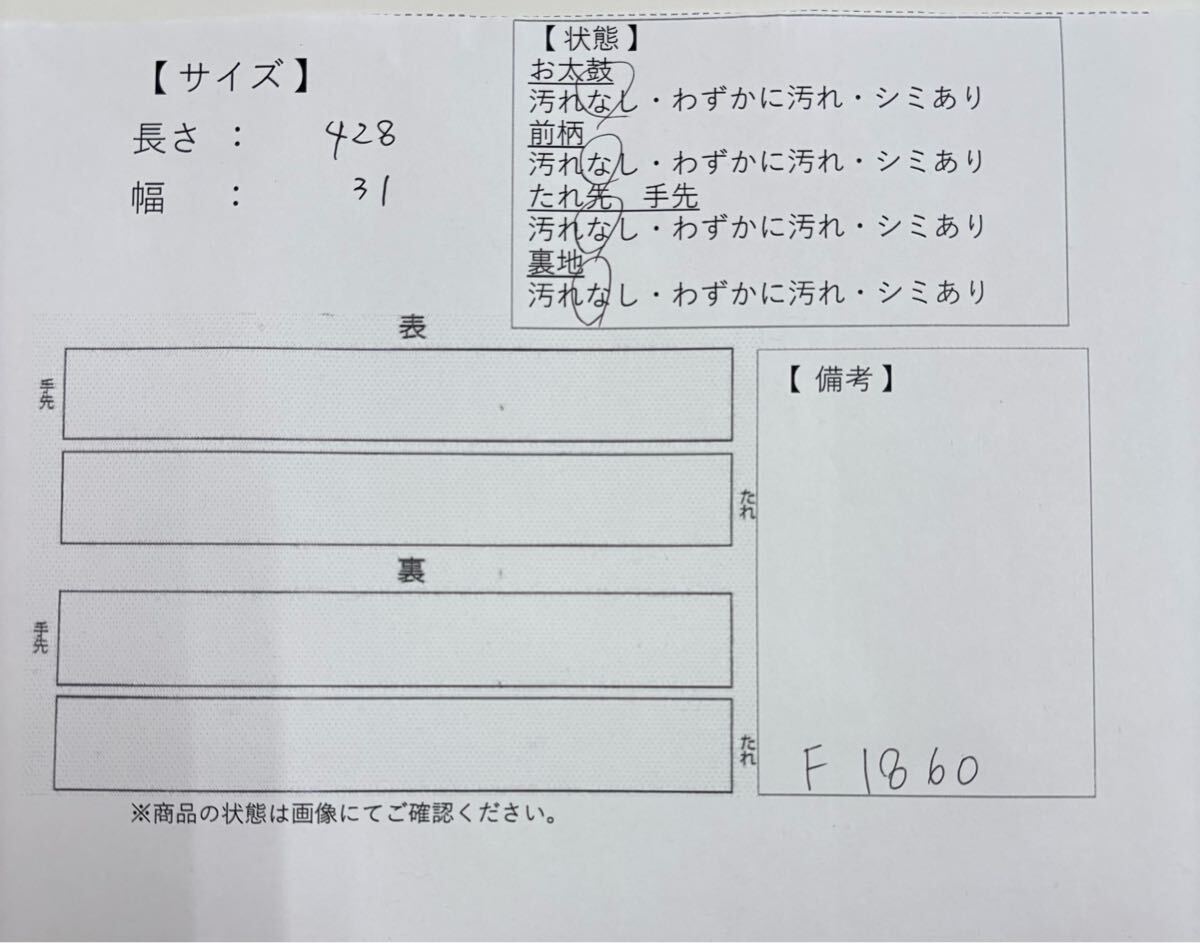 【サイズ】
長さ : 428
幅 : 31
【状態】
お太鼓
汚れなし・わずかに汚れ・シミあり
前柄
汚れなし・わずかに汚れ・シミあり
たれ先 手先
汚れなし・わずかに汚れ・シミあり
裏地
汚れなし・わずかに汚れ・シミあり
表
手先
たれ
裏
手先
たれ
※商品の状態は画像にてご確認ください。
【備考】
F 1860